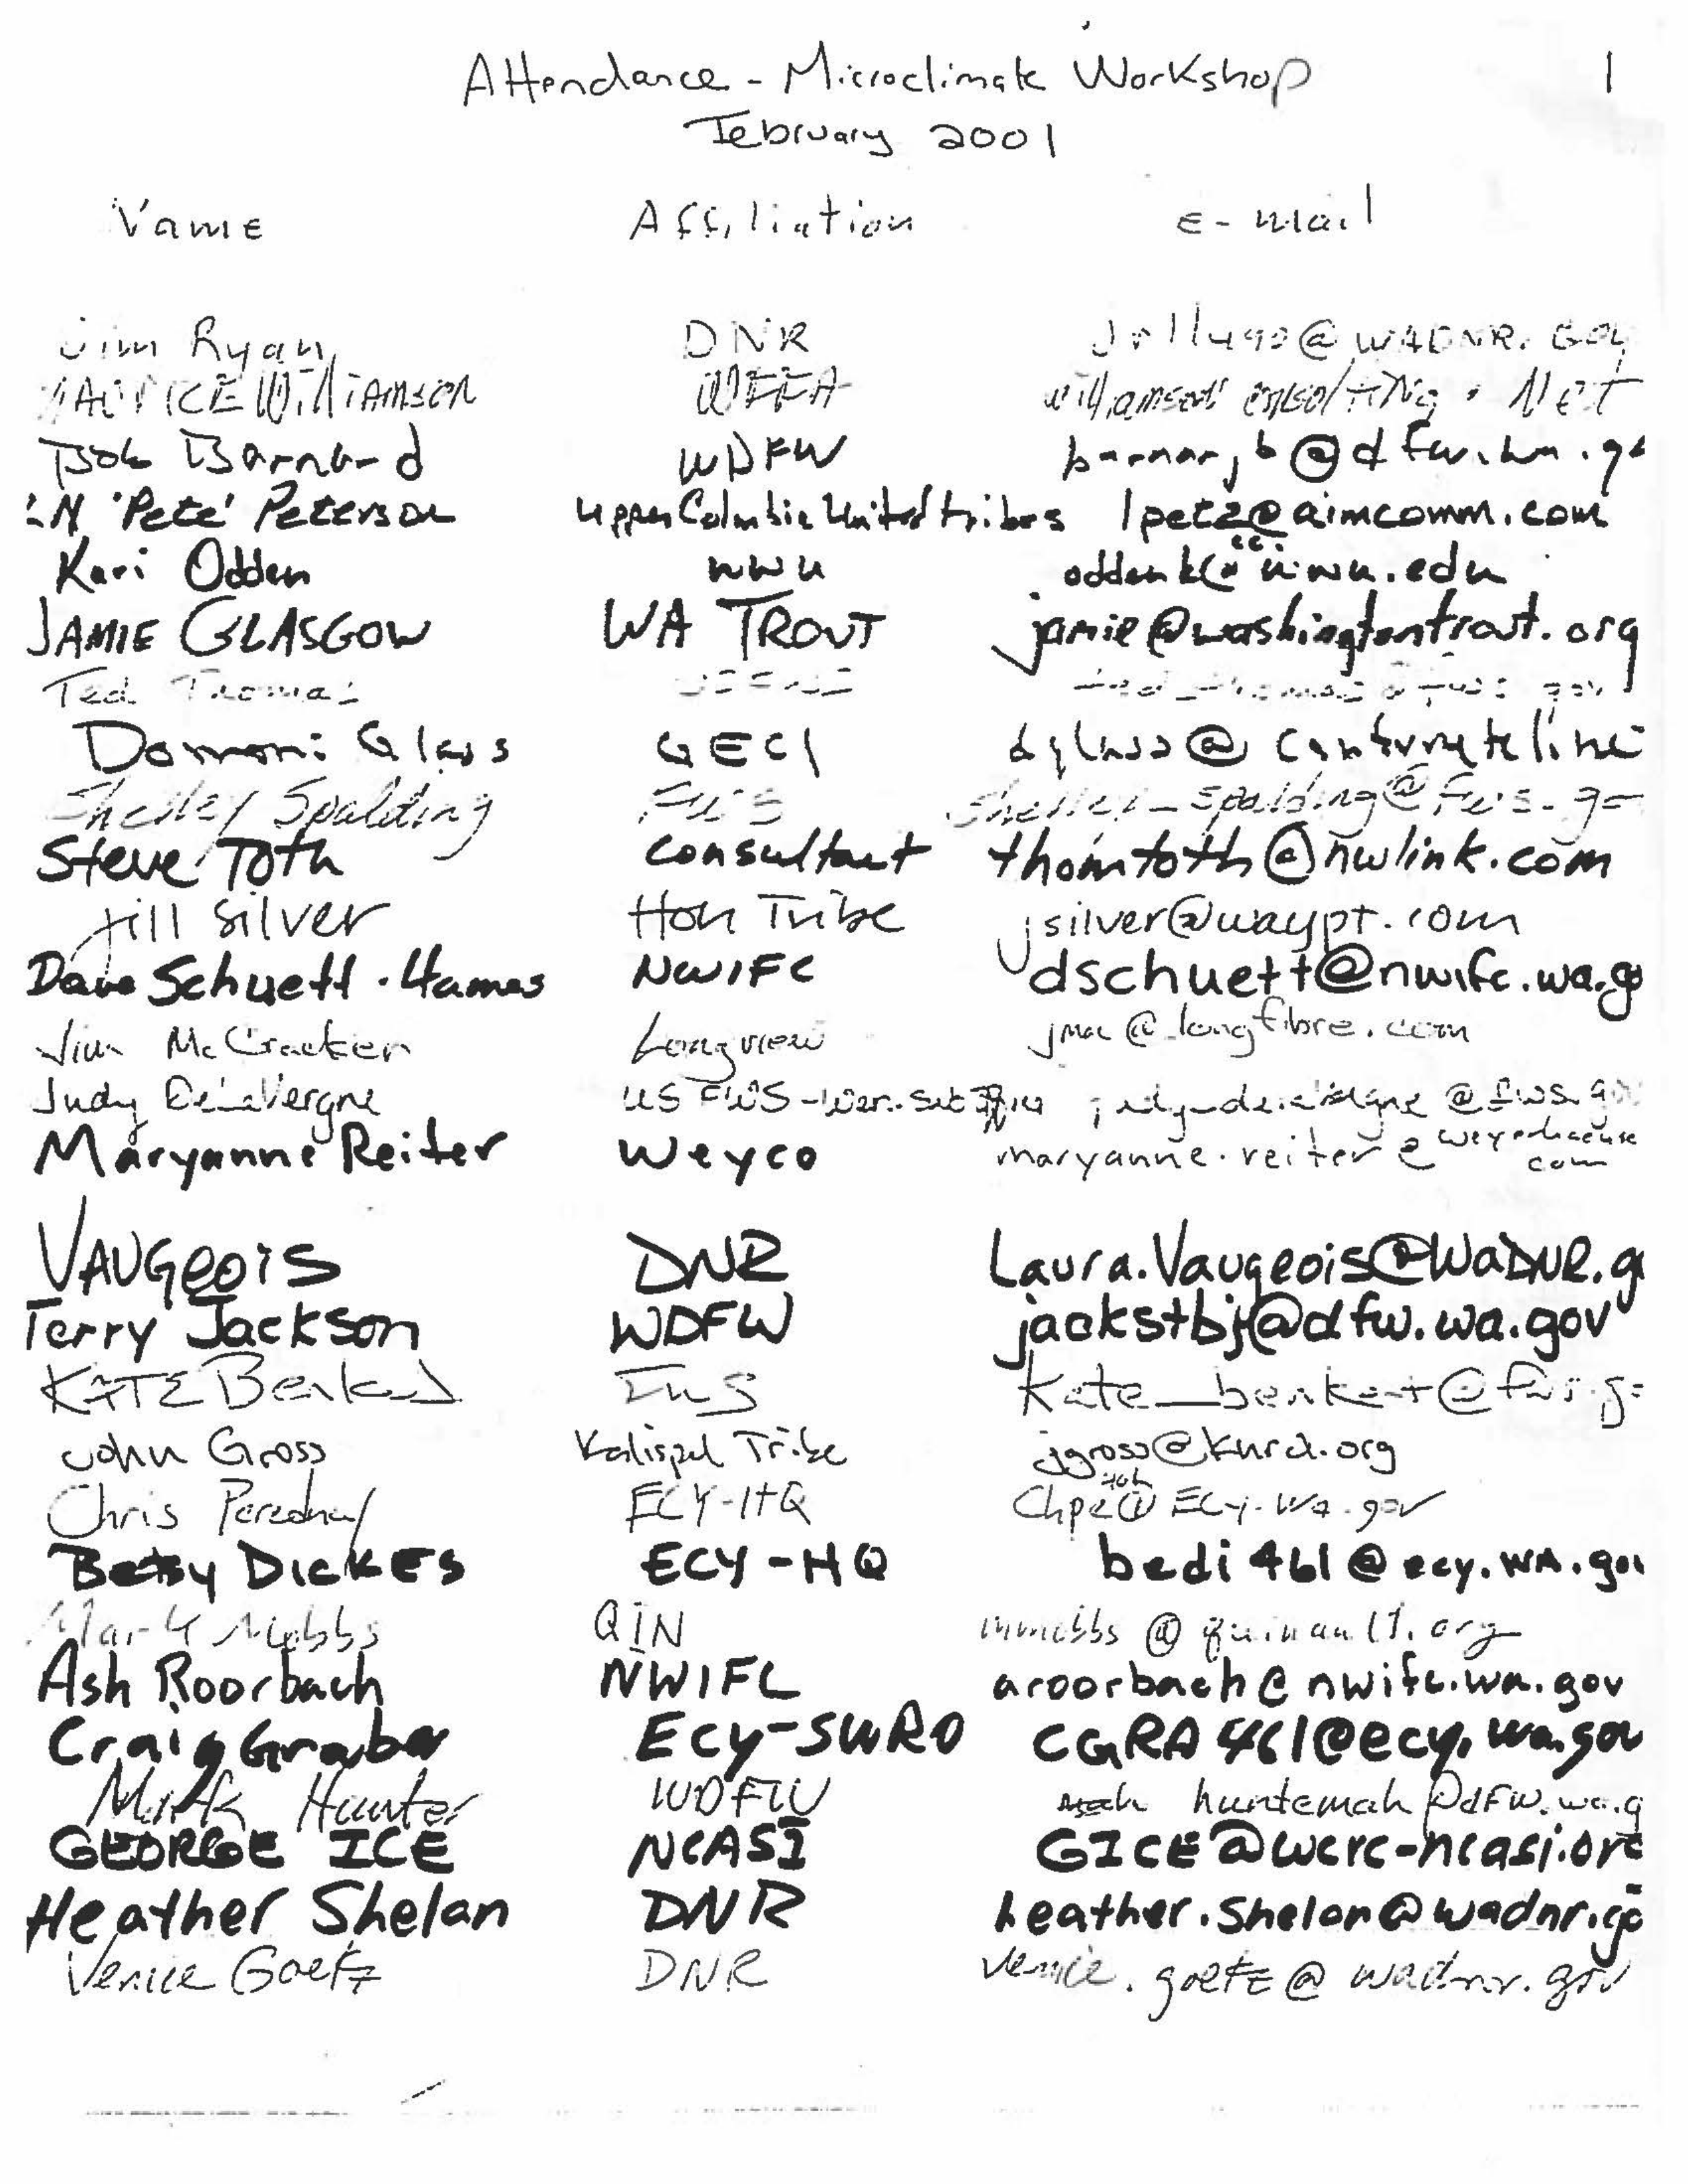 Attendance - Microclimate Workshop 1
February 2001
Name Affiliation e-mail
Jim Ryan DNR @WADNR.GOV
MAURICE Williamson WFFA williamson consulting.Net
Bob Barnard WDFW
'N 'Pete' Peterson Upper Columbia United tribes 1petz@aimcomm.com
Kari Odden WWU
JAMIE GLASGOW WA TROUT jamie@washingtontrout.org
Ted Thomas USFWS ted_thomas@fws.gov
Domoni Glass GECI
Shelley Spalding FWS Shelley_spalding@fws.go
Steve Toth consultant thomtoth@nwlink.com
Jill Silver Hoh Tribe jsilver@waypt.com
Dave Schuett-Hames NWIFC dschuett@nwifc.wa.go
Jim McCracken Longview jmac@longfibre.com
Judy DeLaVergne US FWS-Wen.
Maryanne Reiter Weyco maryanne.reiter@weyerhaeuser
com
VAUGEOIS DNR Laura.Vaugeois@WADNR.g
Terry Jackson WDFW jackstbj@dfw.wa.gov
KATE Benkert FWS Kate_benkert@fws.g
John Gross Kalispel Tribe jgross@knrd.org
Chris ECY-HQ ECy.wa.gov
Betsy DICKES ECY-HQ bedi461@ecy.WA.gov
Mark Mobbs QIN mmobbs@quinault.org
Ash Roorbach NWIFC aroorbach@nwifc.wa.gov
Craig Graber Ecy-SWRO CGRA461@ecy.wa.gov
Mark Hunter WDFW huntemah@dfw.wa.g
GEORGE ICE NCASI GICE@wcrc-ncasi.org
Heather Shelan DNR heather.Shelan@wadnr.go
Venice Goetz DNR venice.goetz@wadnr.gov